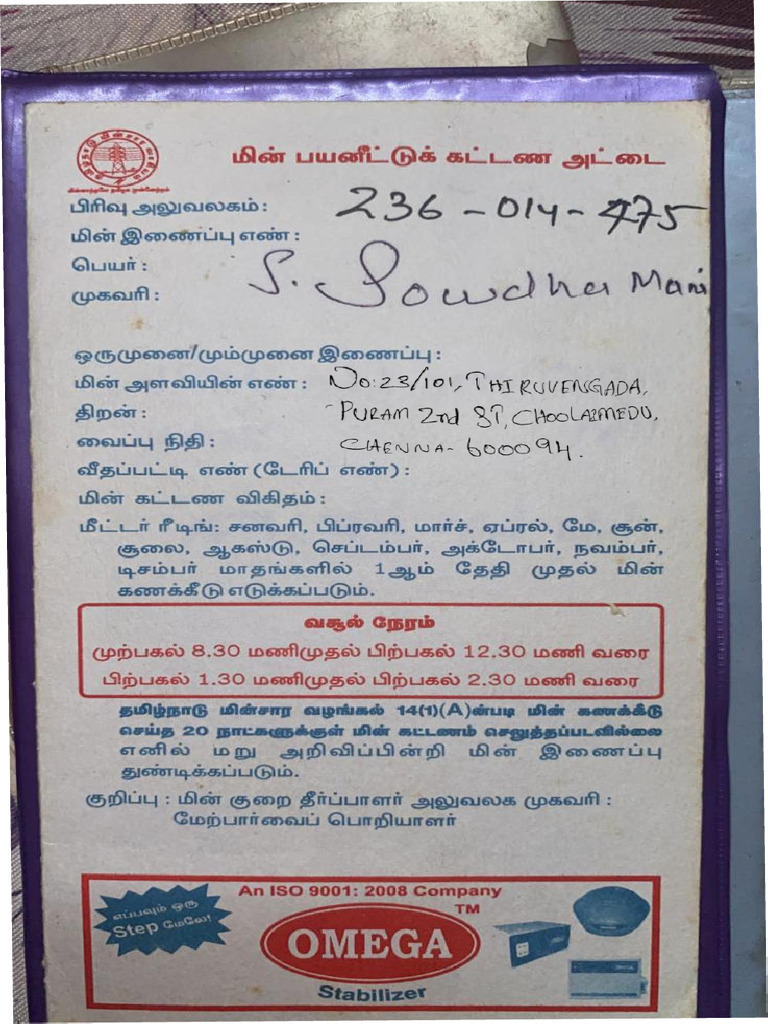 மின் பயனீட்டுக் கட்டண அட்டை
பிரிவு அலுவலகம் : 236-014-475
மின் இணைப்பு எண் :
பெயர் : S. Sowdha Mani
முகவரி :
ஒருமுனை/மும்முனை இணைப்பு :
மின் அளவியின் எண் : No:23/101, THIRUVENGADA,
திறன் : PURAM 2nd ST, CHOOLAIMEDU,
வைப்பு நிதி : CHENNA- 600094.
வீதப்பட்டி எண் (டேரிப் எண்) :
மின் கட்டண விகிதம் :
மீட்டர் ரீடிங்: சனவரி, பிப்ரவரி, மார்ச், ஏப்ரல், மே, சூன்,
சூலை, ஆகஸ்டு, செப்டம்பர், அக்டோபர், நவம்பர்,
டிசம்பர் மாதங்களில் 1ஆம் தேதி முதல் மின்
கணக்கீடு எடுக்கப்படும்.
வசூல் நேரம்
முற்பகல் 8.30 மணிமுதல் பிற்பகல் 12.30 மணி வரை
பிற்பகல் 1.30 மணிமுதல் பிற்பகல் 2.30 மணி வரை
தமிழ்நாடு மின்சார வழங்கல் 14(1)(A)ன்படி மின் கணக்கீடு
செய்த 20 நாட்களுக்குள் மின் கட்டணம் செலுத்தப்படவில்லை
எனில் மறு அறிவிப்பின்றி மின் இணைப்பு
துண்டிக்கப்படும்.
குறிப்பு : மின் குறை தீர்ப்பாளர் அலுவலக முகவரி :
மேற்பார்வைப் பொறியாளர்
An ISO 9001: 2008 Company
எப்பவும் ஒரு
Step மேலே!
OMEGA TM
Stabilizer